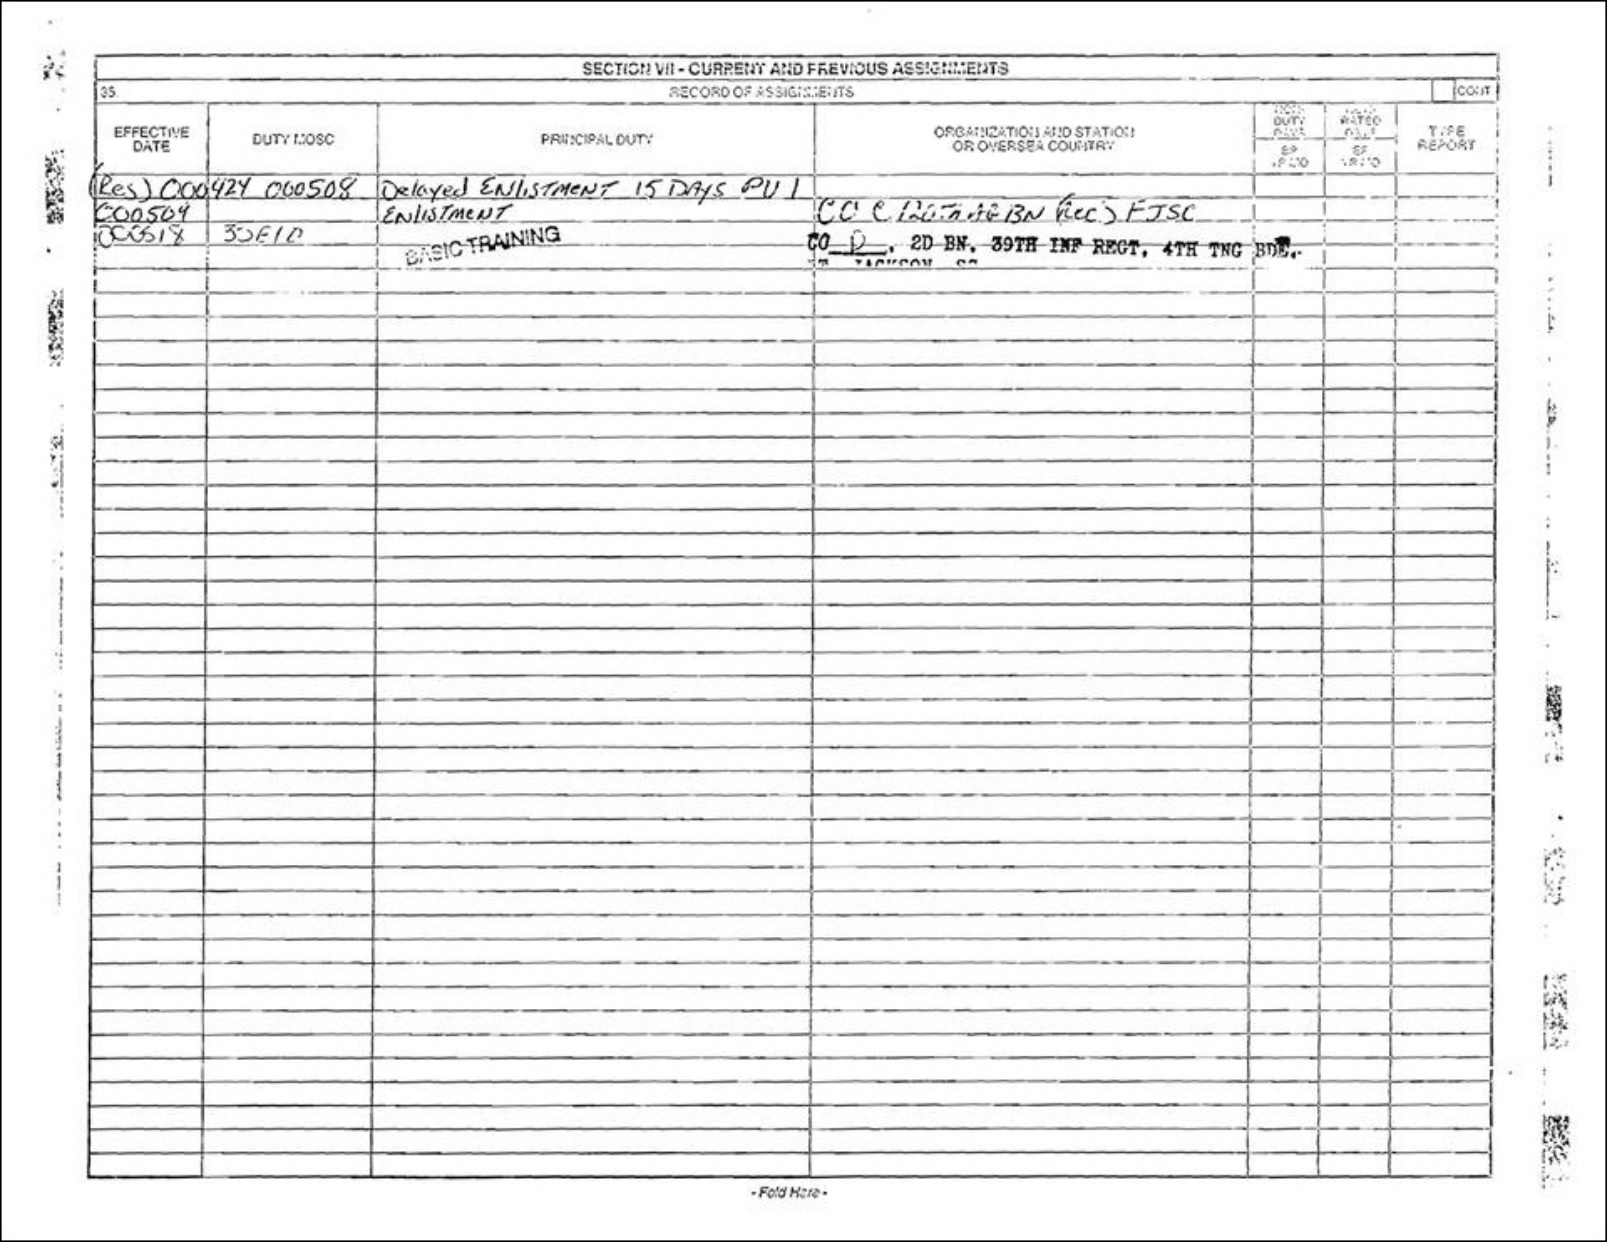 SECTION VII - CURRENT AND PREVIOUS ASSIGNMENTS
35. RECORD OF ASSIGNMENTS CONT
EFFECTIVE DATE DUTY MOSC PRINCIPAL DUTY ORGANIZATION AND STATION OR OVERSEA COUNTRY DUTY RATED TYPE REPORT
(Res) 000424 000508 Delayed ENLISTMENT 15 DAYS PU 1
000509 ENLISTMENT CO C 120th AG BN (Rec) FJSC
000518 BASIC TRAINING CO D, 2D BN, 39TH INF REGT, 4TH TNG BDE,
FT JACKSON SC
- Fold Here -